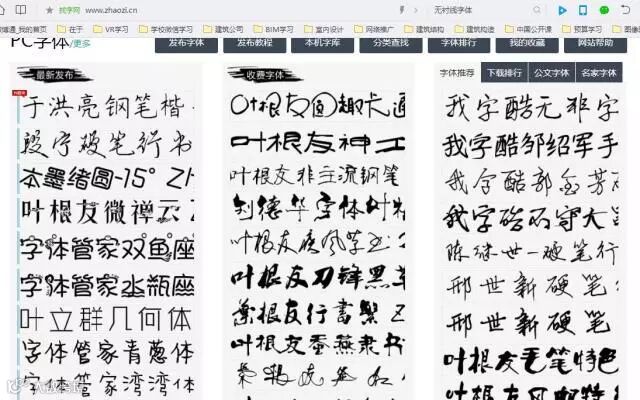 找字网 www.zhaozi.cn
无衬线字体
我的首页 在行 VR学习 学校微信学习 建筑公司 BIM学习 室内设计 网络推广 建筑结构 建筑构造 中国公开课 预算学习
PC字体/更多 发布字体 发布教程 本机字库 分类查找 字体排行 我的收藏 网站帮助
最新发布
于洪亮钢笔楷
段宁硬笔行书
本墨绪圆-15°
叶根友微禅云
字体管家双鱼座
字体管家水瓶座
叶立群几何体
字体管家青葱体
字体管家湾湾体
收费字体
叶根友圆趣卡通
叶根友神工
叶根友非主流钢笔
刘德华字体叶
叶根友疾风草
叶根友刀锋黑草
叶根友行书繁
叶根友蚕燕隶书
字体推荐 下载排行 公文字体 名家字体
我字酷无非字
我字酷邹绍军手
我字酷郭
我字酷石守大
陈继世-硬笔行
邢世新硬笔
邢世新硬笔
叶根友毛笔特色
叶根友风帆特